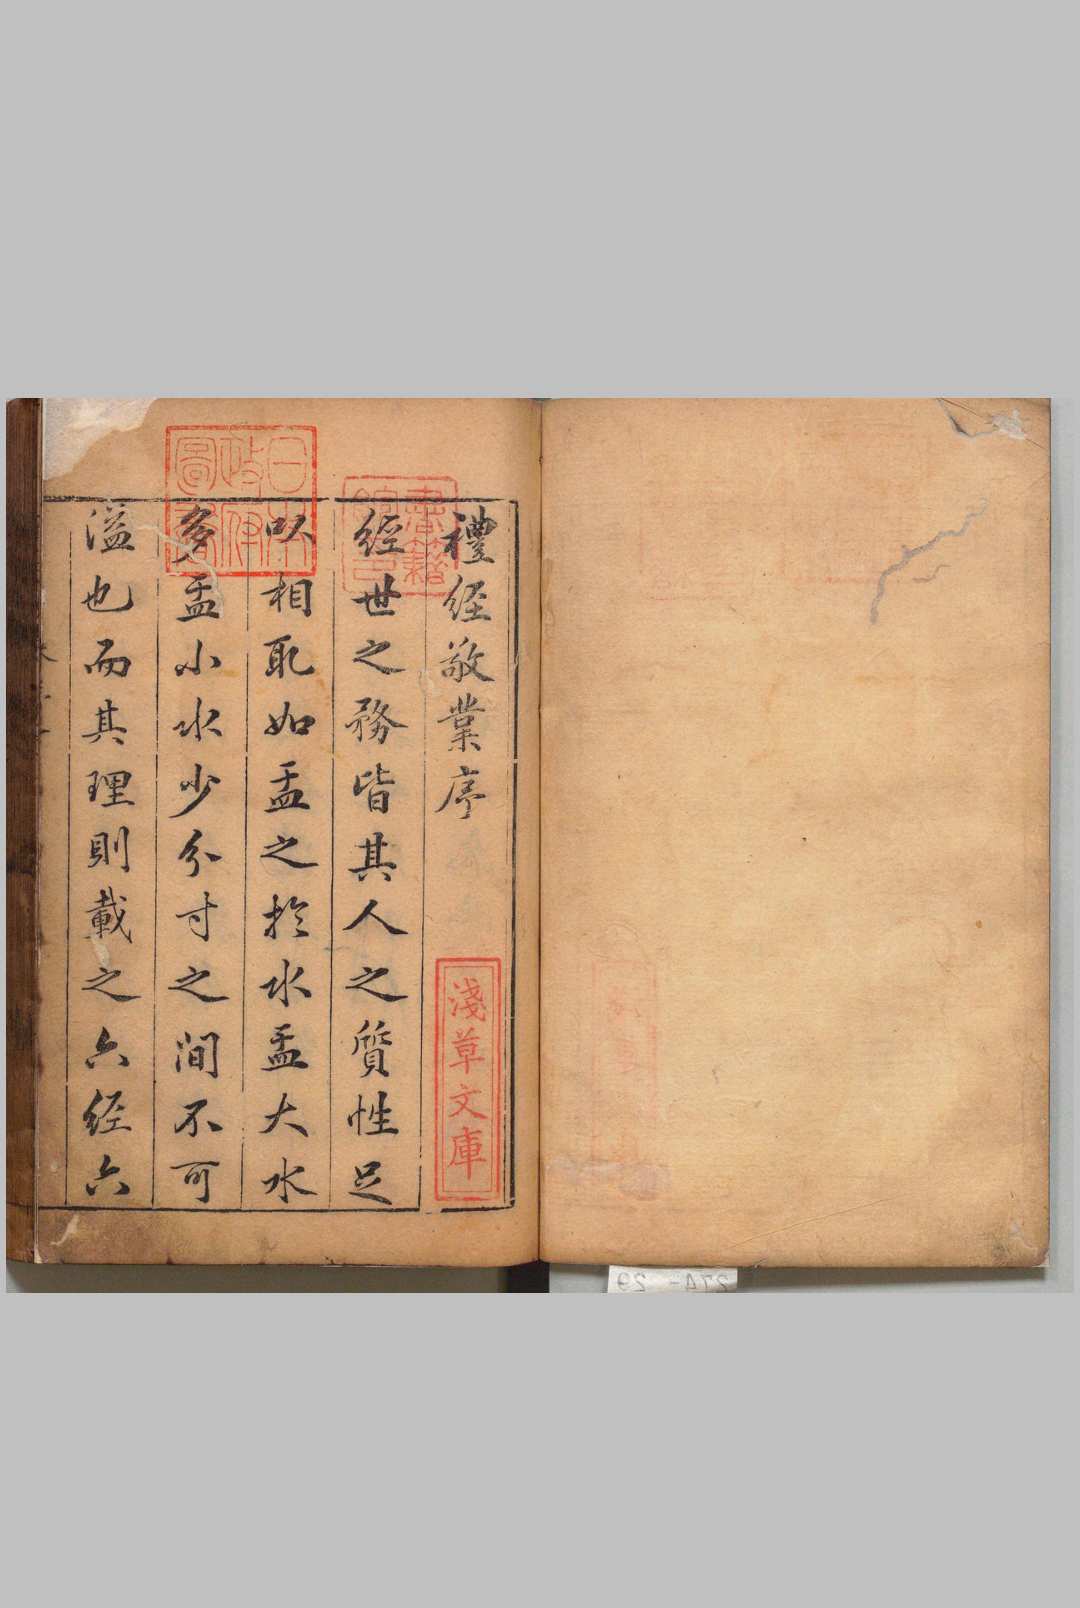 禮經敬業序
經世之務皆其人之質性足
以相取如盂之於水盂大水
多盂小水少分寸之間不可
溢也而其理則載之六經六
淺草文庫
日本政府圖書
書籍館印
274-29